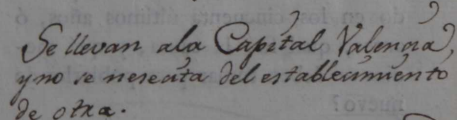 Se llevan ala Capital Valencia,
y no se nesecita del establecimiento
de otra.